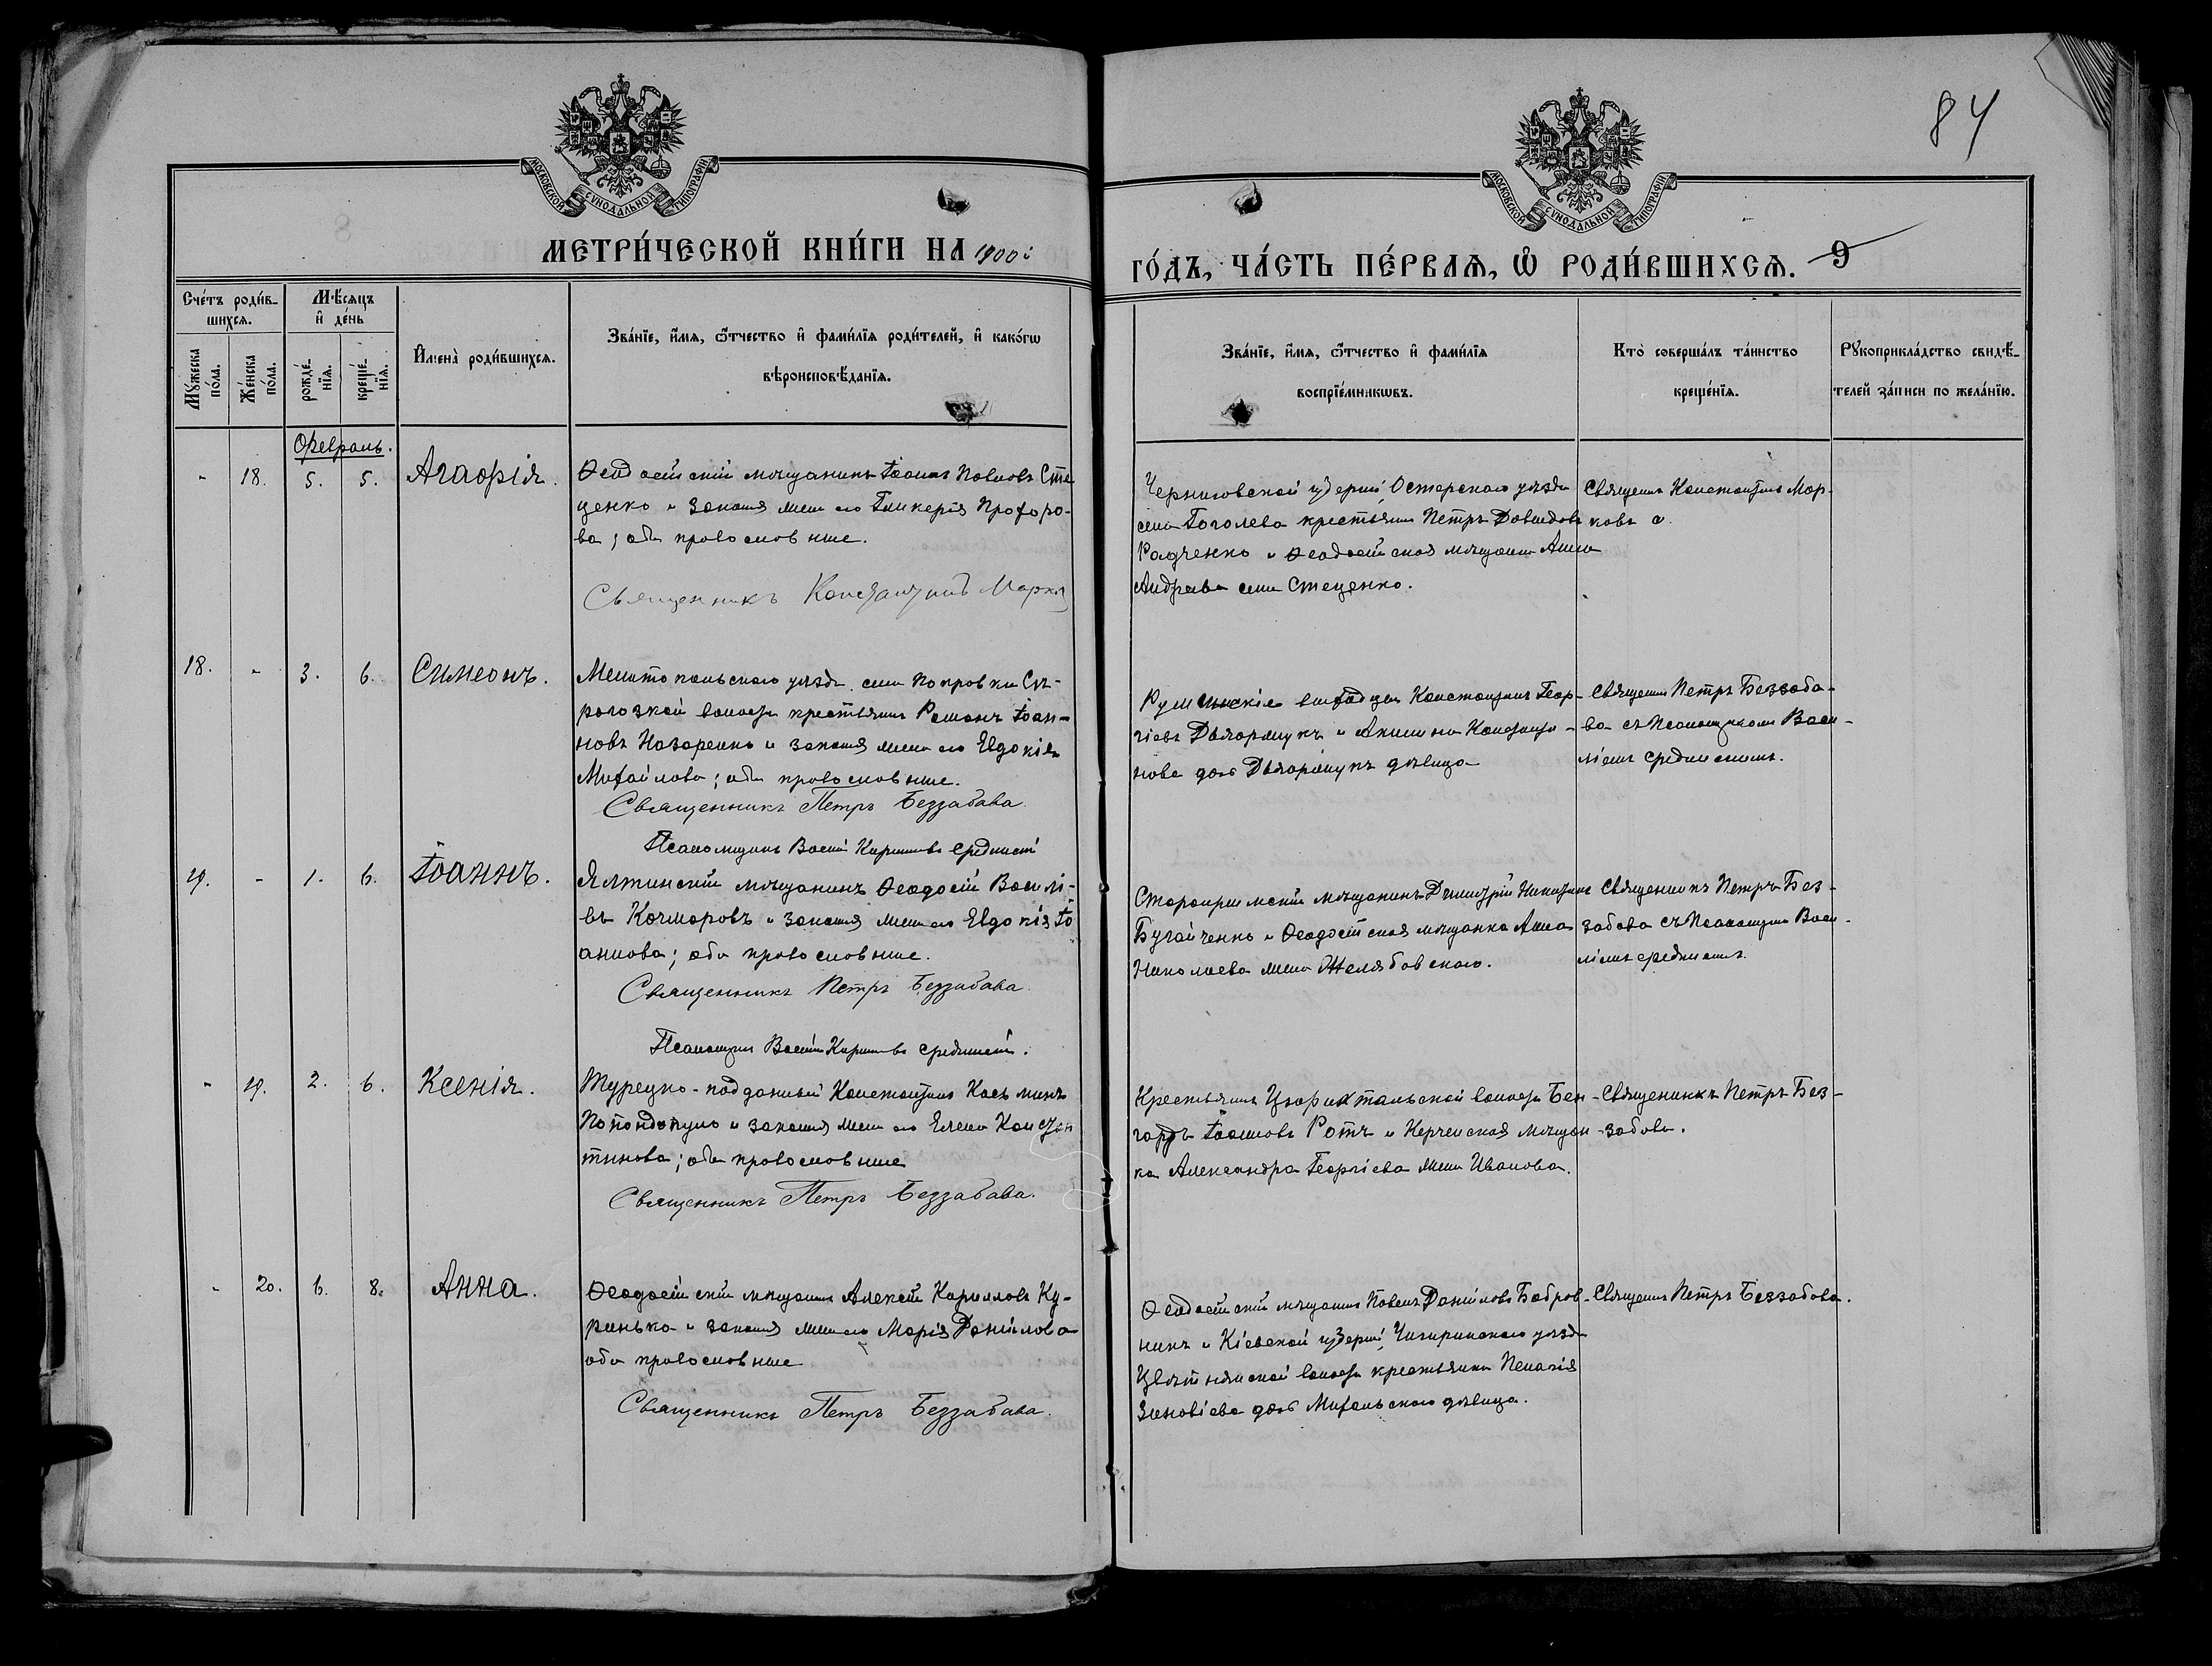 84
МОСКОВСКОЙ СѴНОДАЛЬНОЙ ТИПОГРАФІИ
МОСКОВСКОЙ СѴНОДАЛЬНОЙ ТИПОГРАФІИ
МЕТРИ́ЧЕСКОЙ КНИ́ГИ НА 1900й
ГО́ДЪ, ЧА́СТЬ ПЕ́РВАѦ, Ѡ҆ РОДИ́ВШИХСѦ. 9
Сче́тъ роди́в-
шихсѧ.
Мѣ́сѧцъ
и҆ де́нь
Мꙋ́жеска по́ла.
Же́нска по́ла.
рожде́-
нїѧ.
креще́-
нїѧ.
И҆мена̀ роди́вшихсѧ.
Зва́нїе, и҆́мѧ, ѻ҆́тчество и҆ фами́лїѧ роди́телей, и҆ како́гѡ
вѣроисповѣ́данїѧ.
Зва́нїе, и҆́мѧ, ѻ҆́тчество и҆ фами́лїѧ
воспрїе́мникѡвъ.
Кто̀ соверша́лъ та́инство
креще́нїѧ.
Рꙋкоприкла́дство свидѣ́-
телей за́писи по жела́нїю.
Февраль.
- 18. 5. 5. Агафія.
Ѳеодосійскій мѣщанинъ Іоаннъ Павловъ Сте
ценко и законная жена его Гликерія Прохоро-
ва; оба православные.
Священникъ Константинъ Марков
Черниговской губерніи, Остерскаго уѣзда
села Гоголева крестьянинъ Петръ Давидовъ
Радченко и Ѳеодосійская мѣщанка Анна
Андреева Стеценко.
Священникъ Константинъ Мар-
ковъ
18. - 3. 6. Симеонъ.
Мелитопольскаго уѣзда села Покровки
волости крестьянинъ Романъ Іоан-
новъ Назаренко и законная жена его Евдокія
Михайлова; оба православные.
Священникъ Петръ Беззабава.
Псаломщикъ Василій Кирилловъ Срединскій
Константинъ Геор-
гіевъ и Константи-
нова дочь дѣвица
Священникъ Петръ Беззаба-
ва съ Псаломщикомъ Васи-
ліемъ Срединскимъ.
19. - 1. 6. Іоаннъ.
Ялтинскій мѣщанинъ Ѳеодосій Василі-
въ Качмаровъ и законная жена его Евдокія Іо
аннова; оба православные.
Священникъ Петръ Беззабава.
Псаломщикъ Василій Кирилловъ Срединскій.
Старокрымскій мѣщанинъ Димитрій Никитинъ
Бугайченко и Ѳеодосійская мѣщанка Анна
Николаева жена Желябовскаго.
Священникъ Петръ Без-
забава съ Псаломщикомъ Васи-
ліемъ Срединскимъ.
- 19. 2. 6. Ксенія.
Турецко-подданный Константинъ Косьминъ
Попондопуло и законная жена его Елена Констан
тинова; оба православные
Священникъ Петръ Беззабава.
Крестьянинъ Цюрихтальской волости
Іоанновъ Ротъ и Керченская мѣщан-
ка Александра Георгіева жена Иванова.
Священникъ Петръ Без-
забава.
- 20. 6. 8. Анна.
Ѳеодосійскій мѣщанинъ Алексій Кирилловъ Ку-
ринька и законная жена его Марія Даніилова
оба православные
Священникъ Петръ Беззабава.
Ѳеодосійскій мѣщанинъ Павелъ Даніиловъ Бобров-
никъ и Кіевской губерніи, Чигиринскаго уѣзда
Цвѣтнянской волости крестьянка Пелагія
Зиновіева дочь Михальскаго дѣвица.
Священникъ Петръ Беззабава.